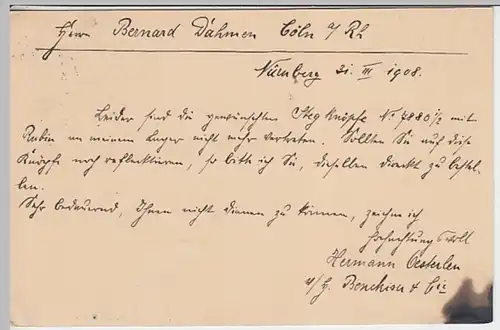 Herrn Bernard Dahmen Cöln a/Rh
Nürnberg 31. III 1908.
Leider sind die gewünschten Steg Knöpfe No 7880 1/2 mit
Rubin an meinem Lager nicht mehr vertreten. Sollten Sie auf diese
Knöpfe noch reflektieren, so bitte ich Sie, dieselben direkt zu bestel-
len.
Sehr bedauernd, Ihnen nicht dienen zu können, zeichne ich
Hochachtungsvoll
Hermann Oesterlen
i/H. Benckiser & Cie